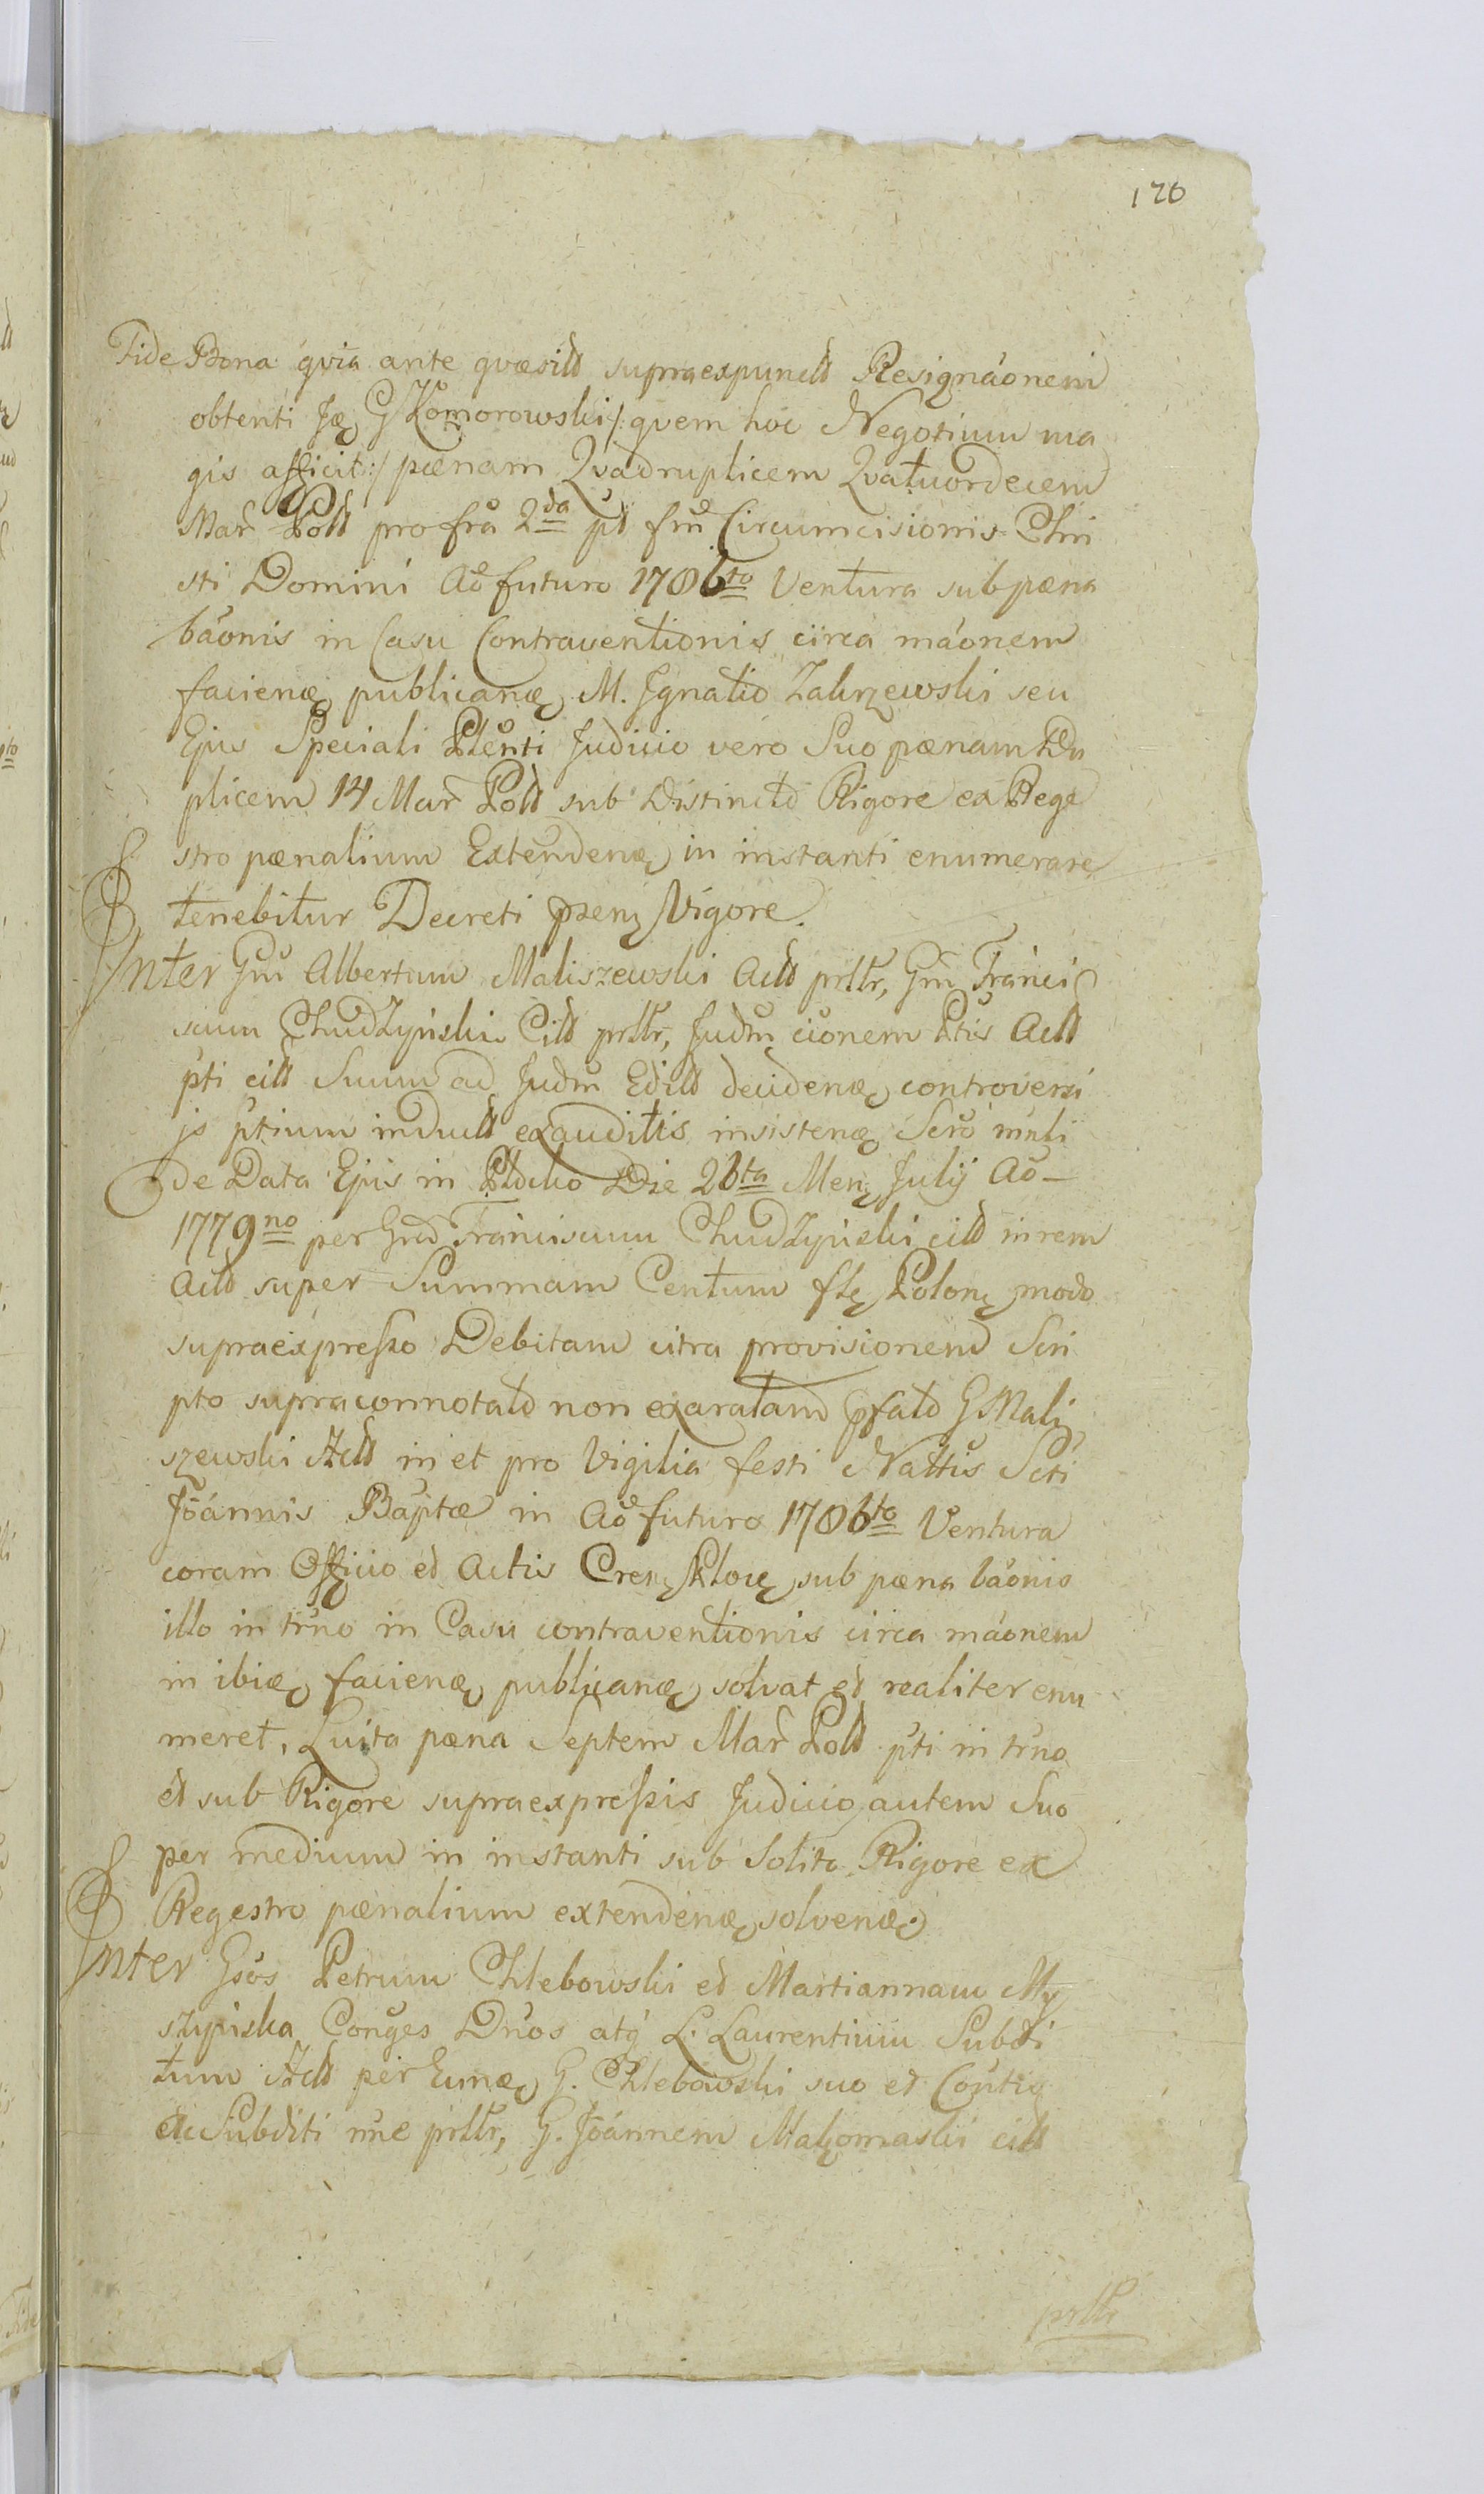 120
Fide Bona qvia ante qvæsitt supraexpunctt Resignãonem
obtenti Jæ G Komorowski /: qvem hoc Negotium ma
gis afficit :/ pænam Qvadruplicem Qvatuordecem
Mar̃ Poll pro frã 2da pt fm̃ Circumcisionis Chri
sti Domini Aõ futuro 1786to Ventura sub pæna
bãonis in Casu Contraventionis circa mãonem
facienæ publicanæ M. Ignatio Zakrzewski seu
Ejus Speciali Pleñti Judicio vero Suo pænam Du
plicem 14 Mar̃ Poll sub Distincto Rigore ex Rege
stro pænalium Extendenæ in instanti enumerare
tenebitur Decreti præn Vigore.
Inter Gm̃ Albertum Maliszewski Actt prttr, Gm̃ Franci
scum Chudzynski Citt prttr, Judm̃ cionem Ptis Actt
pti citt Suum ad Judm̃ Editt decidenæ controversi
js ptium inductt exauditis insistenæ Scro muli
de Data Ejus in Die 26ta Men Julij Aõ
1779no per Gnd Franciscum Chudzynski citt in rem
Actt super Summam Centum fl Polon modo
supraexpresso Debitam citra provisionem Scri
pto supraconnotato non exaratam pfato G Mali
szewski Actt in et pro Vigilia festi Nattis Scti
Joãnnis Bãptæ in Aõ futuro 1786to Ventura
coram Officio et Actis Cren Ploc sub pæna bãonis
illo in trño in Casu contraventionis circa mãonem
in ibiæ facienæ publicanæ solvat et realiter enu
meret, Luita pæna Septem Mar̃ Poll pti in trño
et sub Rigore supraexpressis Judicio autem Suo
per medium in instanti sub Solito Rigore ex
Regestro pænalium extendenæ solvenæ.
Inter Gsõs Petrum Chlebowski et Martiannam My
szynska Conges Dños atq L. Laurentium Subdi
tum Actt per Eumæ G. Chlebowski suo et Contis
ac Subditi nne prttr, G. Joãnnem Malzomaski citt
prttr